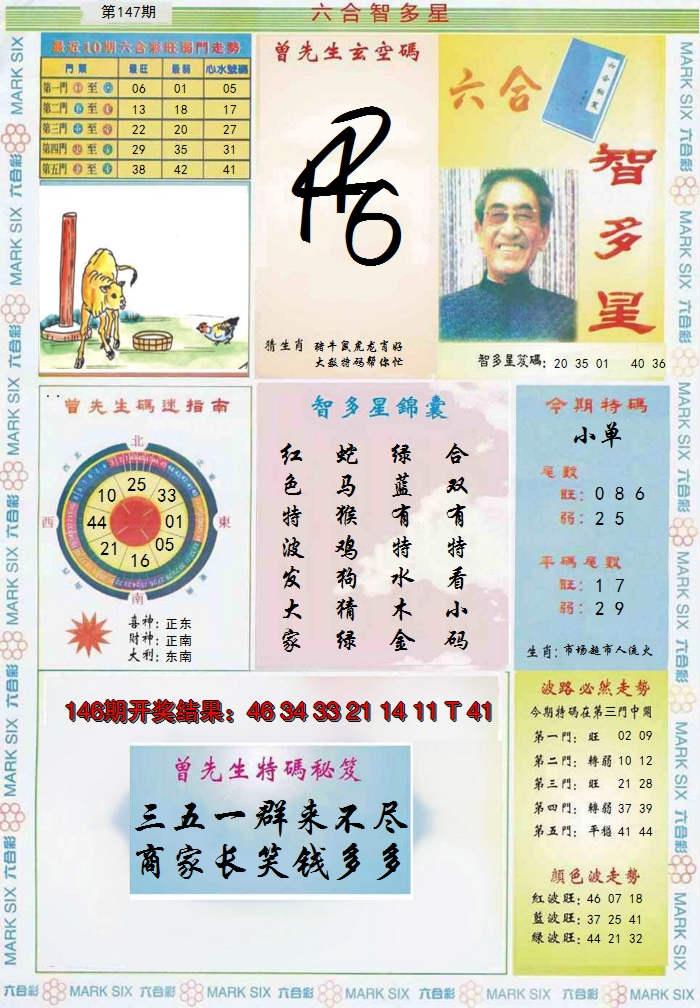 第147期
六合智多星
最近10期六合彩旺弱門走勢
門類 最旺 最弱 心水號碼
第一門 至 06 01 05
第二門 至 13 18 17
第三門 至 22 20 27
第四門 至 29 35 31
第五門 至 38 42 41
曾先生玄空碼
猜生肖 豬牛鼠虎龙肖好
大数特码帮你忙
六合
智多星
智多星笈碼: 20 35 01 40 36
曾先生碼迷指南
北
西
東
南
25
33
01
05
16
21
44
10
喜神: 正东
財神: 正南
大利: 东南
智多星錦囊
红色特波发大家
蛇马猴鸡狗猜绿
绿蓝有特水木金
合双有特看小码
今期特碼
小单
尾數
旺: 0 8 6
弱: 2 5
平碼尾數
旺: 1 7
弱: 2 9
生肖: 市场超市人流火
146期开奖结果: 46 34 33 21 14 11 T 41
曾先生特碼秘笈
三五一群来不尽
商家长笑钱多多
波路必然走勢
今期特碼在第三門中開
第一門: 旺 02 09
第二門: 轉弱 10 12
第三門: 旺 21 28
第四門: 轉弱 37 39
第五門: 平穩 41 44
顏色波走勢
紅波旺: 46 07 18
藍波旺: 37 25 41
綠波旺: 44 21 32
六合彩 MARK SIX 六合彩 MARK SIX 六合彩 MARK SIX 六合彩 MARK SIX